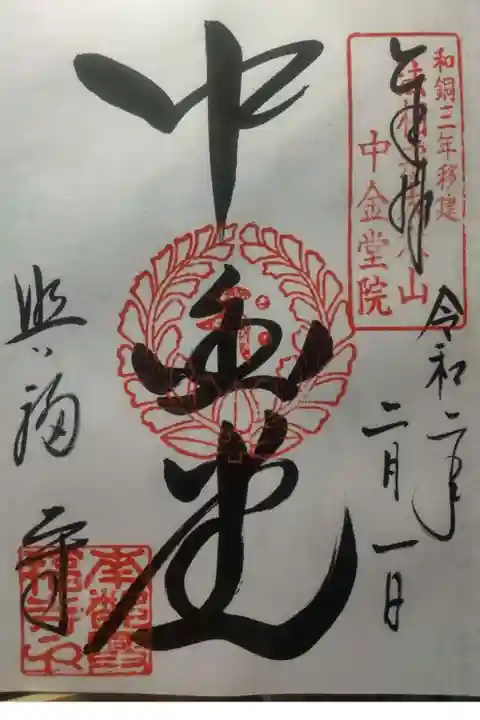 奉拝
和銅三年移建
法相宗大本山
中金堂院
令和二年
二月一日
中金堂
興福寺